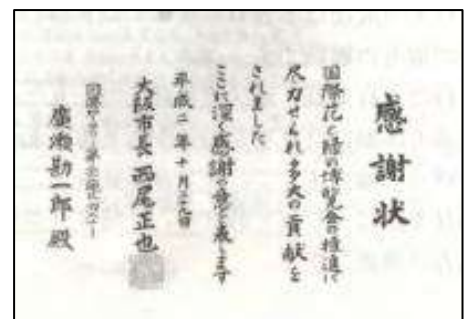 感謝状
国際花と緑の博覧会の推進に
尽力せられ多大の貢献を
されました
ここに深く感謝の意を表します
平成二年十月
大阪市長 西尾正也
廣瀬勘一郎 殿